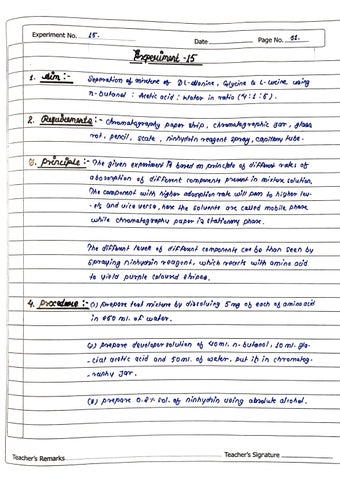 Experiment No. 15.
Date
Page No. 51.
Experiment -15
1. Aim :- Separation of mixture of DL-alanine, Glycine & L-leucine using
n-butanol : Acetic acid : Water in ratio (4:1:5).
2. Requirements :- Chromatography paper strip, chromatographic jar, glass
rod, pencil, scale, ninhydrin reagent spray, capillary tube.
3. Principle :- The given experiment is based on principle of different rates of
absorption of different components present in mixture solution.
The component with higher adsorption rate will pass to higher lev-
els and vice versa, here the solvents are called mobile phase
while chromatography paper is stationary phase.
The different levels of different components can be then seen by
spraying ninhydrin reagent, which reacts with amino acid
to yield purple coloured stripes.
4. Procedure :- (1) prepare test mixture by dissolving 5mg of each of amino acid
in 250 ml. of water.
(2) prepare developer solution of 40ml. n-butanol, 10 ml. gla-
cial acetic acid and 50ml. of water. put it in chromatog-
raphy jar.
(3) prepare 0.2% sol. of ninhydrin using absolute alcohol.
Teacher's Remarks
Teacher's Signature